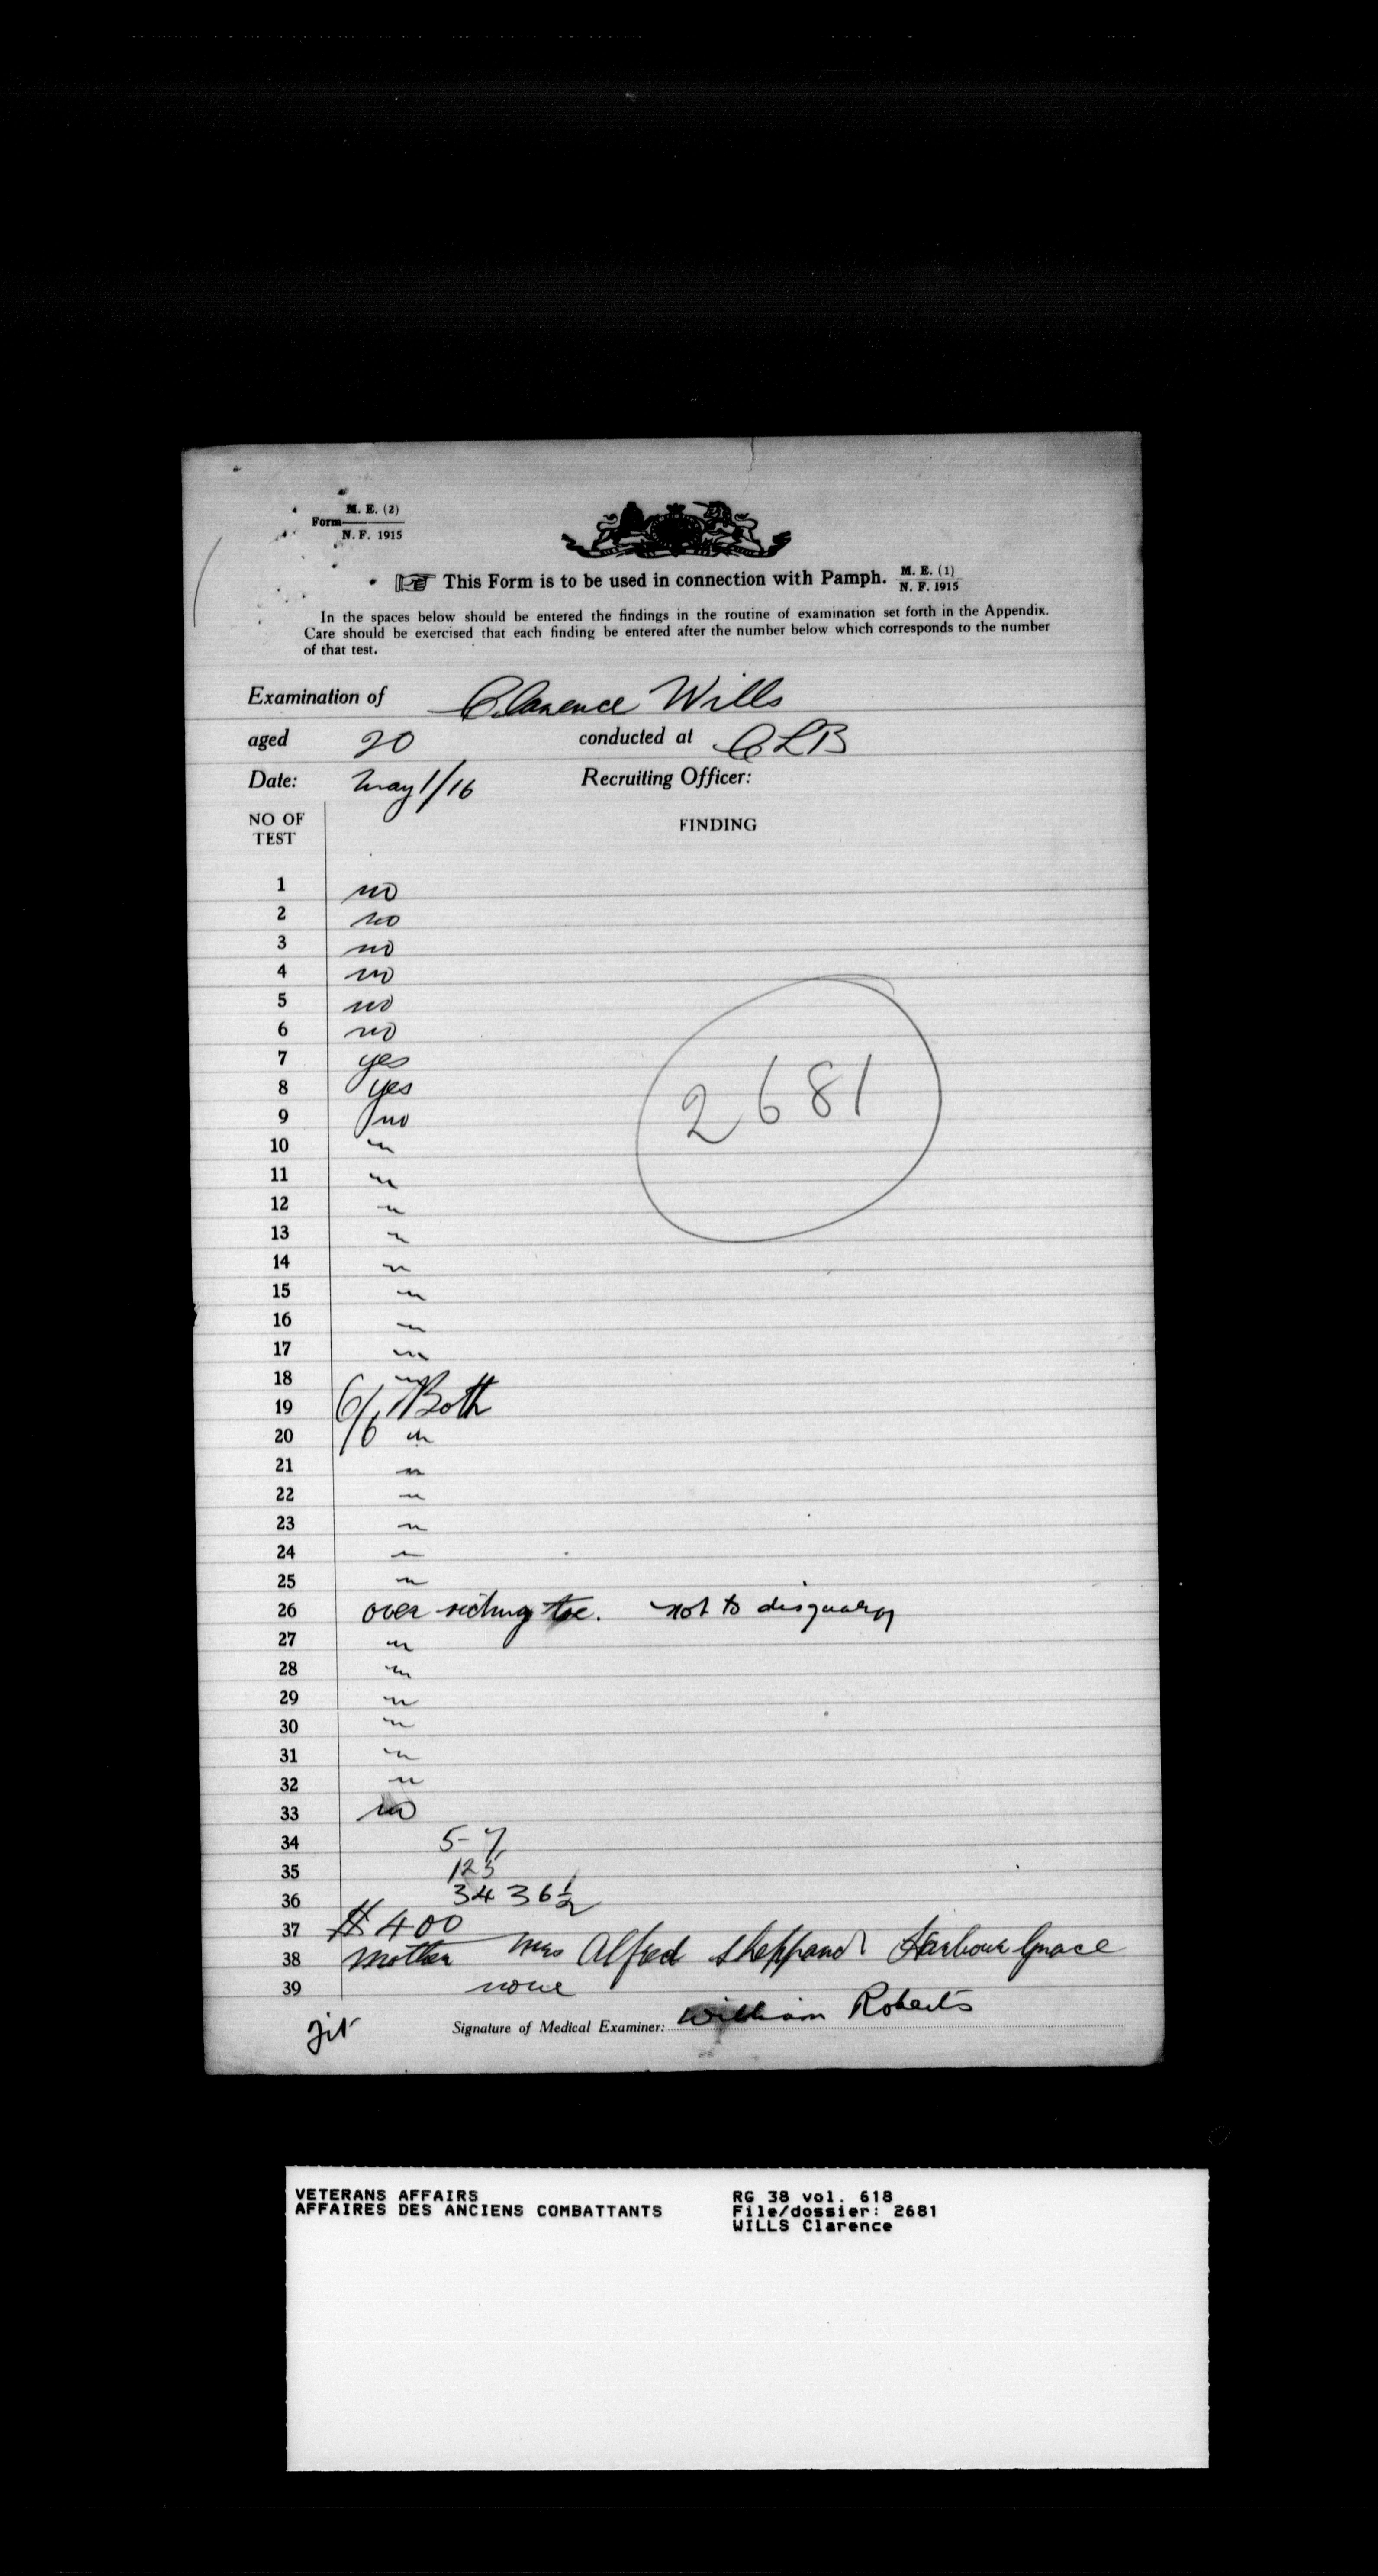 M. E. (2)
Form
N. F. 1915
This Form is to be used in connection with Pamph. M. E. (1)
N. F. 1915
In the spaces below should be entered the findings in the routine of examination set forth in the Appendix.
Care should be exercised that each finding be entered after the number below which corresponds to the number
of that test.
Examination of Clarence Wills
aged 20 conducted at CLB
Date: May 1/16 Recruiting Officer:
NO OF
TEST
FINDING
1 no
2 no
3 no
4 no
5 no
6 no
7 yes
8 yes
9 no
2681
10
11
12
13
14
15
16
17
18
19 6/6 Both
20
21
22
23
24
25
26 over riding toe. not to
27
28
29
30
31
32
33 no
34 5-7
35 125
36 34 36 1/2
37 $400
38 Mother Mrs Alfred Sheppard Harbour Grace
39 none
fit
Signature of Medical Examiner: William Roberts
VETERANS AFFAIRS RG 38 vol. 618
AFFAIRES DES ANCIENS COMBATTANTS File/dossier: 2681
WILLS Clarence